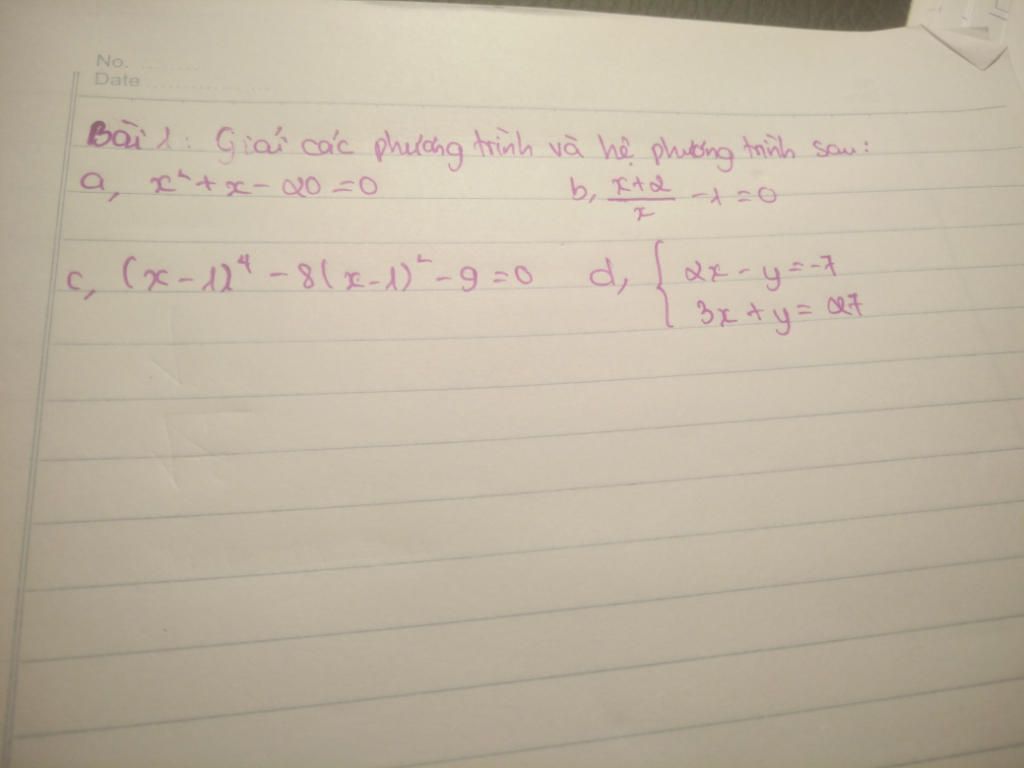 No. ........
Date ................
Bài 1: Giải các phương trình và hệ phương trình sau:
a, x² + x - 20 = 0 b, (x+2)/x - 1 = 0
c, (x-1)⁴ - 8(x-1)² - 9 = 0 d, { 2x - y = -7
3x + y = 27